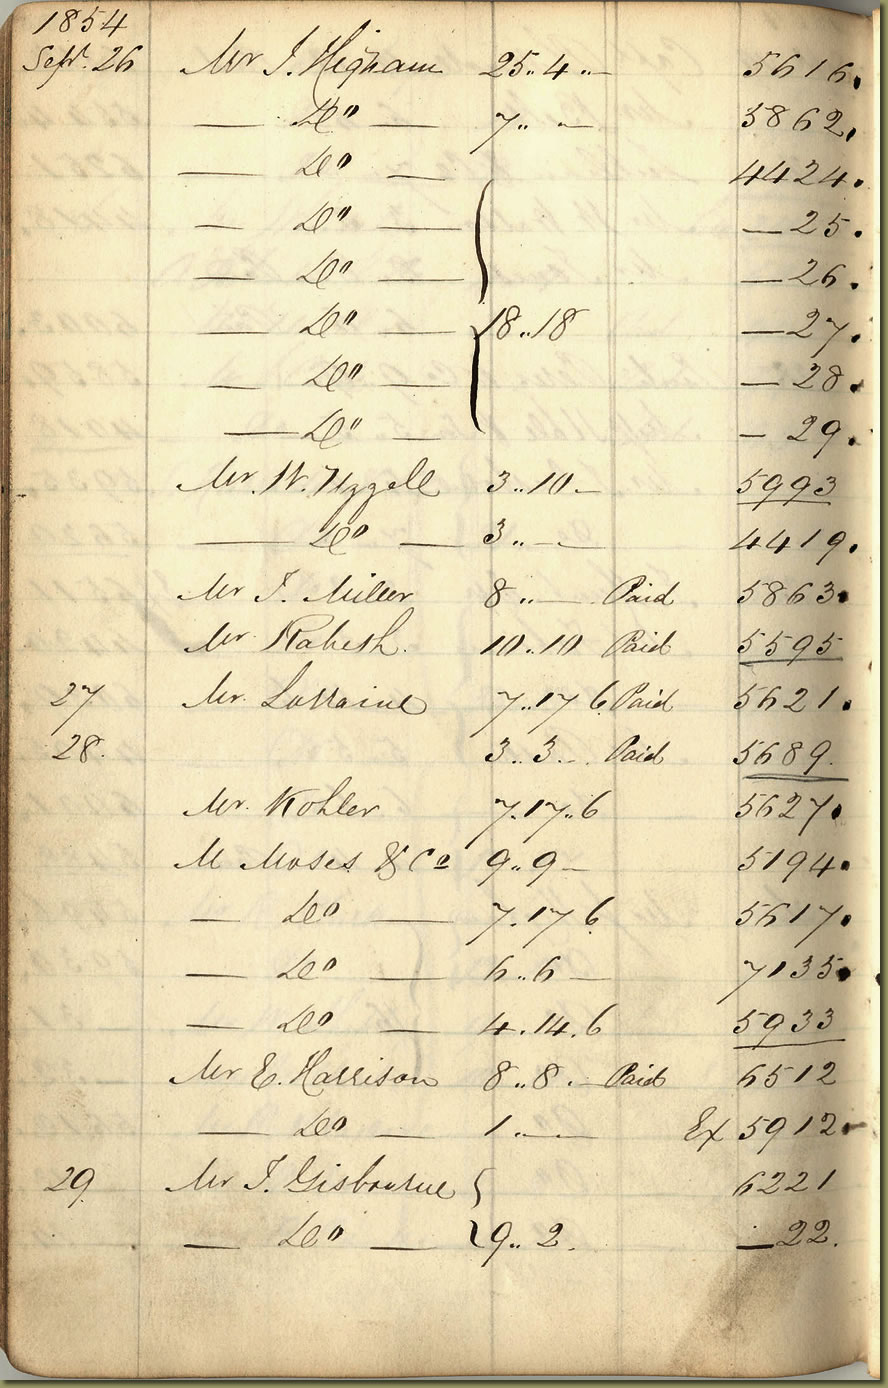 1854
Sept. 26 Mr J. Higham 25..4..— 5616.
— Do — 7.. — 5862.
— Do — 4424.
— Do — —25.
— Do — —26.
— Do — 18..18 —27.
— Do — —28.
— Do — —29.
Mr. W. Uzzell 3..10.— 5993
— Do — 3..—.— 4419.
Mr J. Miller 8..— Paid 5863.
Mr. 10..10 Paid 5595
27 Mr. Lorraine 7..17 6 Paid 5621.
28. 3..3.. Paid 5689.
Mr. Kohler 7.17..6 5627.
M Moses & Co 9..9 — 5194.
— Do — 7.17 6 5617.
— Do — 6..6 — 7135.
— Do — 4.14.6 5933
Mr E. Harrison 8..8.— Paid 6512
— Do — 1.—— Ex 5912.
29 Mr J. Gisbourne 6221
— Do — 9..2. —22.